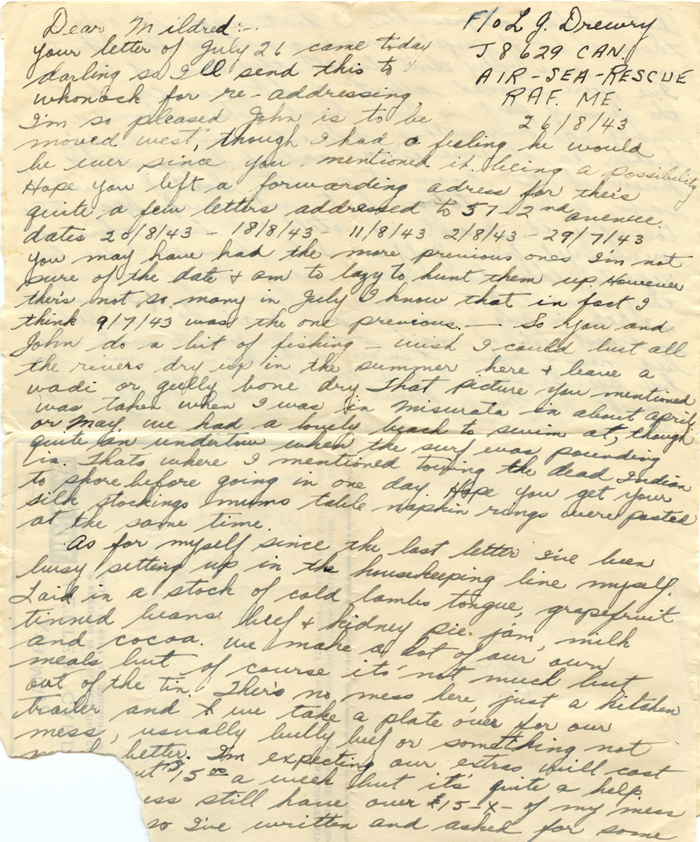 Dear Mildred:-
F/o L J. Drewry
J8629 CAN
AIR-SEA-RESCUE
RAF. ME.
26/8/43
Your letter of July 26 came today
darling so I'll send this to
whonock for re-addressing
I'm so pleased John is to be
moved west, though I had a feeling he would
be ever since you mentioned it being a possibility
Hope you left a forwarding adress for ther's
quite a few letters addressed to 57-2nd avenue.
dates 20/8/43 - 18/8/43 - 11/8/43 2/8/43 - 29/7/43
you may have had the more previous ones I'm not
sure of the date & am to lazy to hunt them up. However
ther's not so many in July I know that in fact I
think 9/7/43 was the one previous. - So you and
John do a bit of fishing - wish I could but all
the rivers dry up in the summer here & leave a
wadi or gully bone dry That picture you mentioned
was taken when I was in Misurata in about april
or May, we had a lovely beach to swim at, though
quite an undertow when the surf was pounding
in. Thats where I mentioned towing the dead Indian
to shore before going in one day. Hope you get your
silk stockings mums table napkin rings were posted
at the same time.
As for myself since the last letter I've been
busy setting up in the housekeeping line myself.
Laid in a stock of cold lambs tongue, grapefruit
tinned beans beef & kidney pie. jam, milk
and cocoa. we make a lot of our own
meals but of course its' not much but
out of the tin. There's no mess here, just a kitchen
trailer and we take a plate over for our
mess, usually bully beef or something not
much better. I'm expecting our extras will cost
$5.00 a week but it's quite a help
still have over $15-x- of my mess
so I've written and asked for some